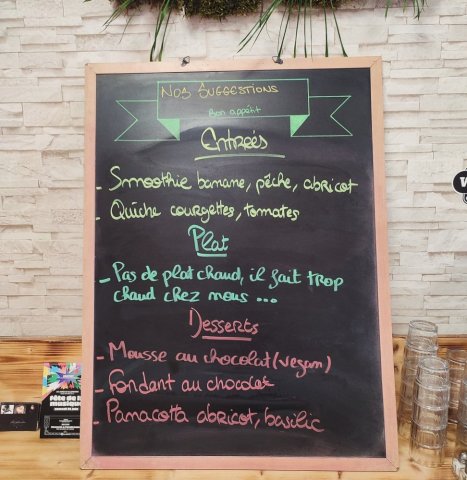 Nos Suggestions
Bon appétit
Entrées
- Smoothie banane, pêche, abricot
- Quiche courgettes, tomates
Plat
- Pas de plat chaud, il fait trop
chaud chez nous ...
Desserts
- Mousse au chocolat (vegan)
- Fondant au chocolat
- Panacotta abricot, basilic
Fête de la
musique